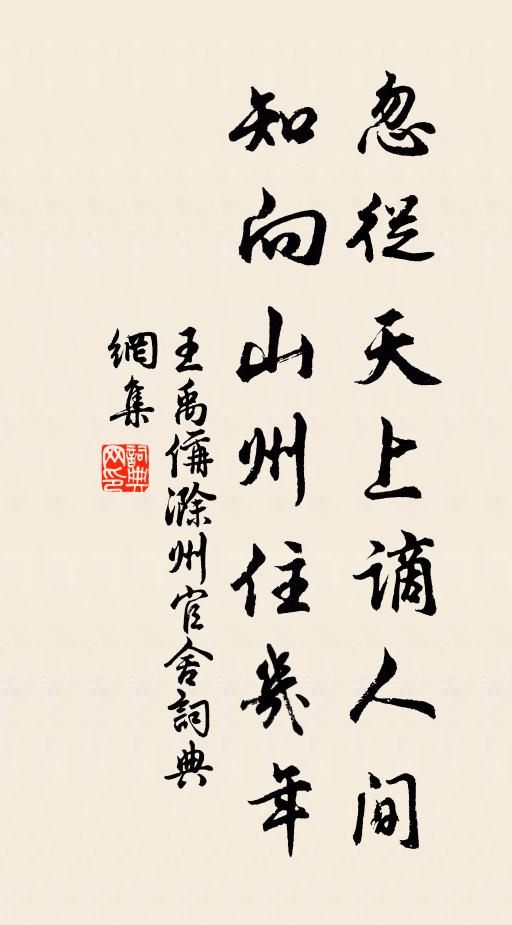 忽從天上謫人间
知向山州住幾年
王禹偁滁州官舍詞典
網集
詞典
网印